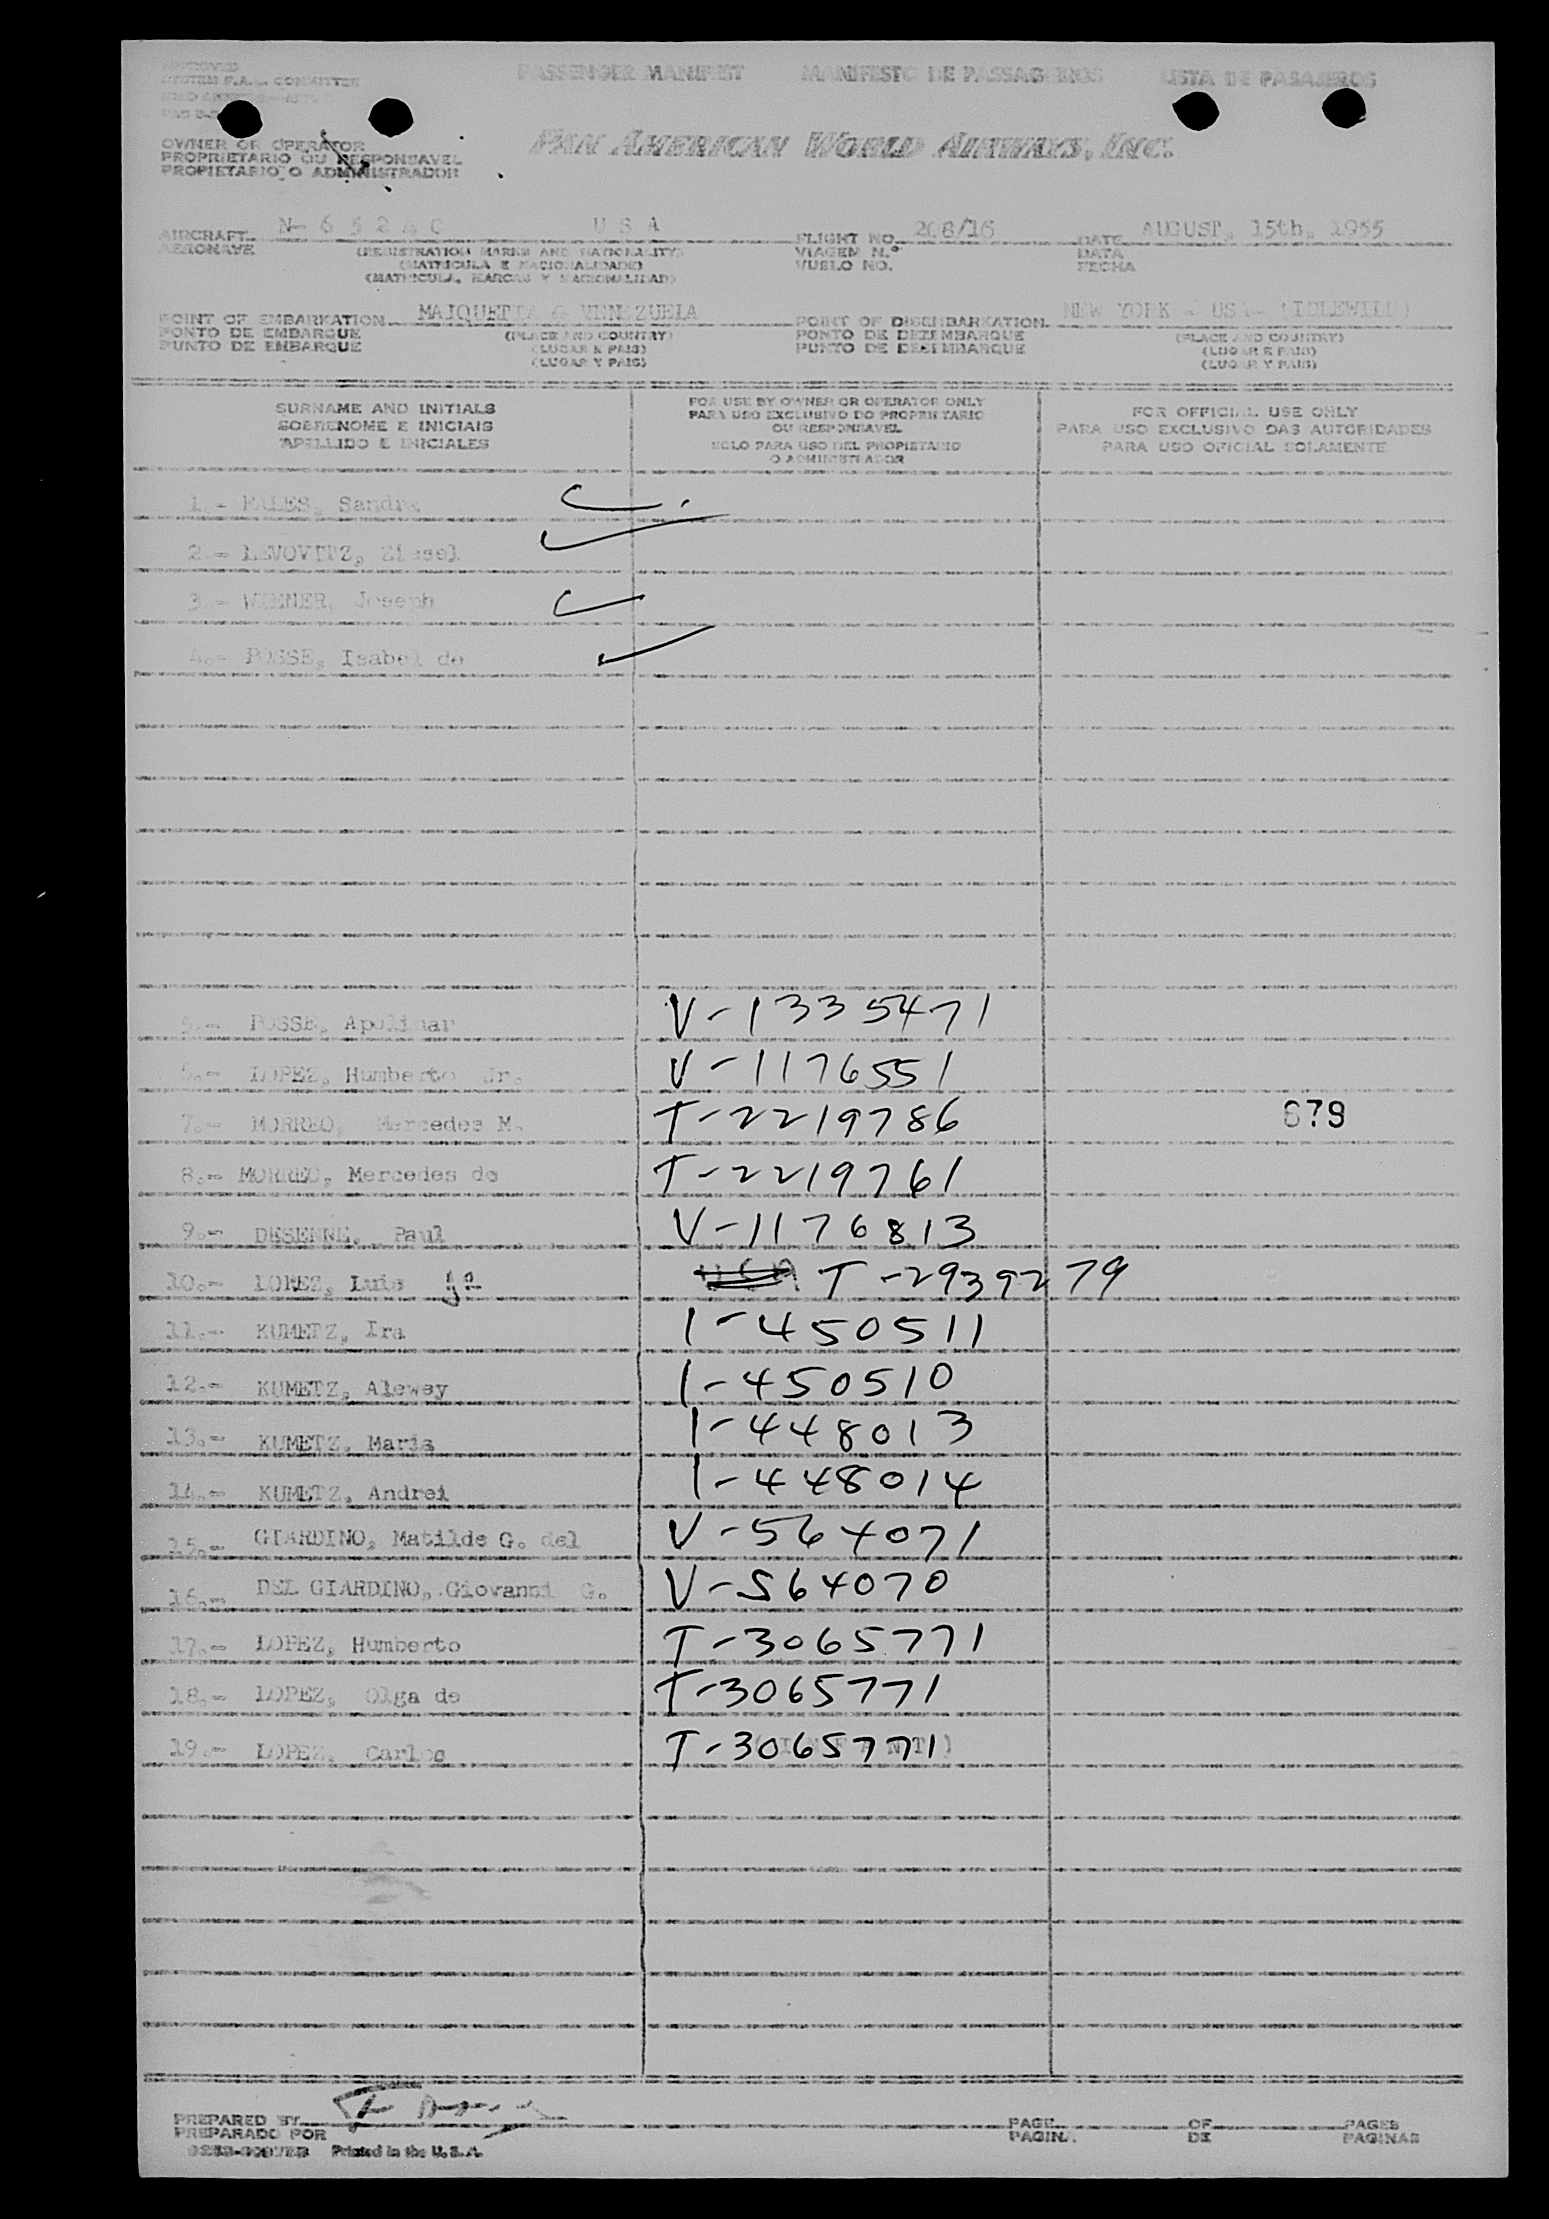 APPROVED
SYSTEM F.A.L. COMMITTEE
PASSENGER MANIFEST MANIFESTO DE PASSAGEIROS LISTA DE PASAJEROS
OWNER OR OPERATOR
PROPRIETARIO OU RESPONSAVEL
PROPIETARIO O ADMINISTRADOR
PAN AMERICAN WORLD AIRWAYS, INC.
AIRCRAFT N- 6 5 2 4 C U S A FLIGHT NO. 208/16 DATE AUGUST, 15th, 1955
AERONAVE (REGISTRATION MARKS AND NATIONALITY) VIAGEM N.º DATA
(MATRICULA E NACIONALIDADE) VUELO NO. FECHA
(MATRICULA, MARCAS Y NACIONALIDAD)
POINT OF EMBARKATION MAIQUETIA VENEZUELA POINT OF DISEMBARKATION NEW YORK - USA- (IDLEWILD)
PONTO DE EMBARQUE (PLACE AND COUNTRY) PONTO DE DESEMBARQUE (PLACE AND COUNTRY)
PUNTO DE EMBARQUE (LUGAR E PAIS) PUNTO DE DESEMBARQUE (LUGAR E PAIS)
(LUGAR Y PAIS) (LUGAR Y PAIS)
SURNAME AND INITIALS FOR USE BY OWNER OR OPERATOR ONLY FOR OFFICIAL USE ONLY
SOBRENOME E INICIAIS PARA USO EXCLUSIVO DO PROPRIETARIO PARA USO EXCLUSIVO DAS AUTORIDADES
APELLIDO E INICIALES OU RESPONSAVEL PARA USO OFICIAL SOLAMENTE
SOLO PARA USO DEL PROPIETARIO
O ADMINISTRADOR
1.- Sandra
2.- LEVOVITZ,
3.- Joseph
4.- POSSE, Isabel de
POSSE, Apolinar V-1335471
LOPEZ, Humberto Jr. V-1176551
7.- MORREO, Mercedes M. T-2219786 679
8.- MORREO, Mercedes de T-2219761
9.- DESENNE, Paul V-1176813
10.- LOPEZ, Luis T-2939279
11.- KUMETZ, Ira 1-450511
12.- KUMETZ, Alewey 1-450510
13.- KUMETZ, Maria 1-448013
14.- KUMETZ, Andrei 1-448014
15.- GIARDINO, Matilde G. del V-564071
16.- DEL GIARDINO, Giovanni G. V-564070
17.- LOPEZ, Humberto T-3065771
18.- LOPEZ, Olga de T-3065771
19.- LOPEZ, Carlos T-3065771
PREPARED BY PAGE OF PAGES
PREPARADO POR PAGINA DE PAGINAS
Printed in the U.S.A.